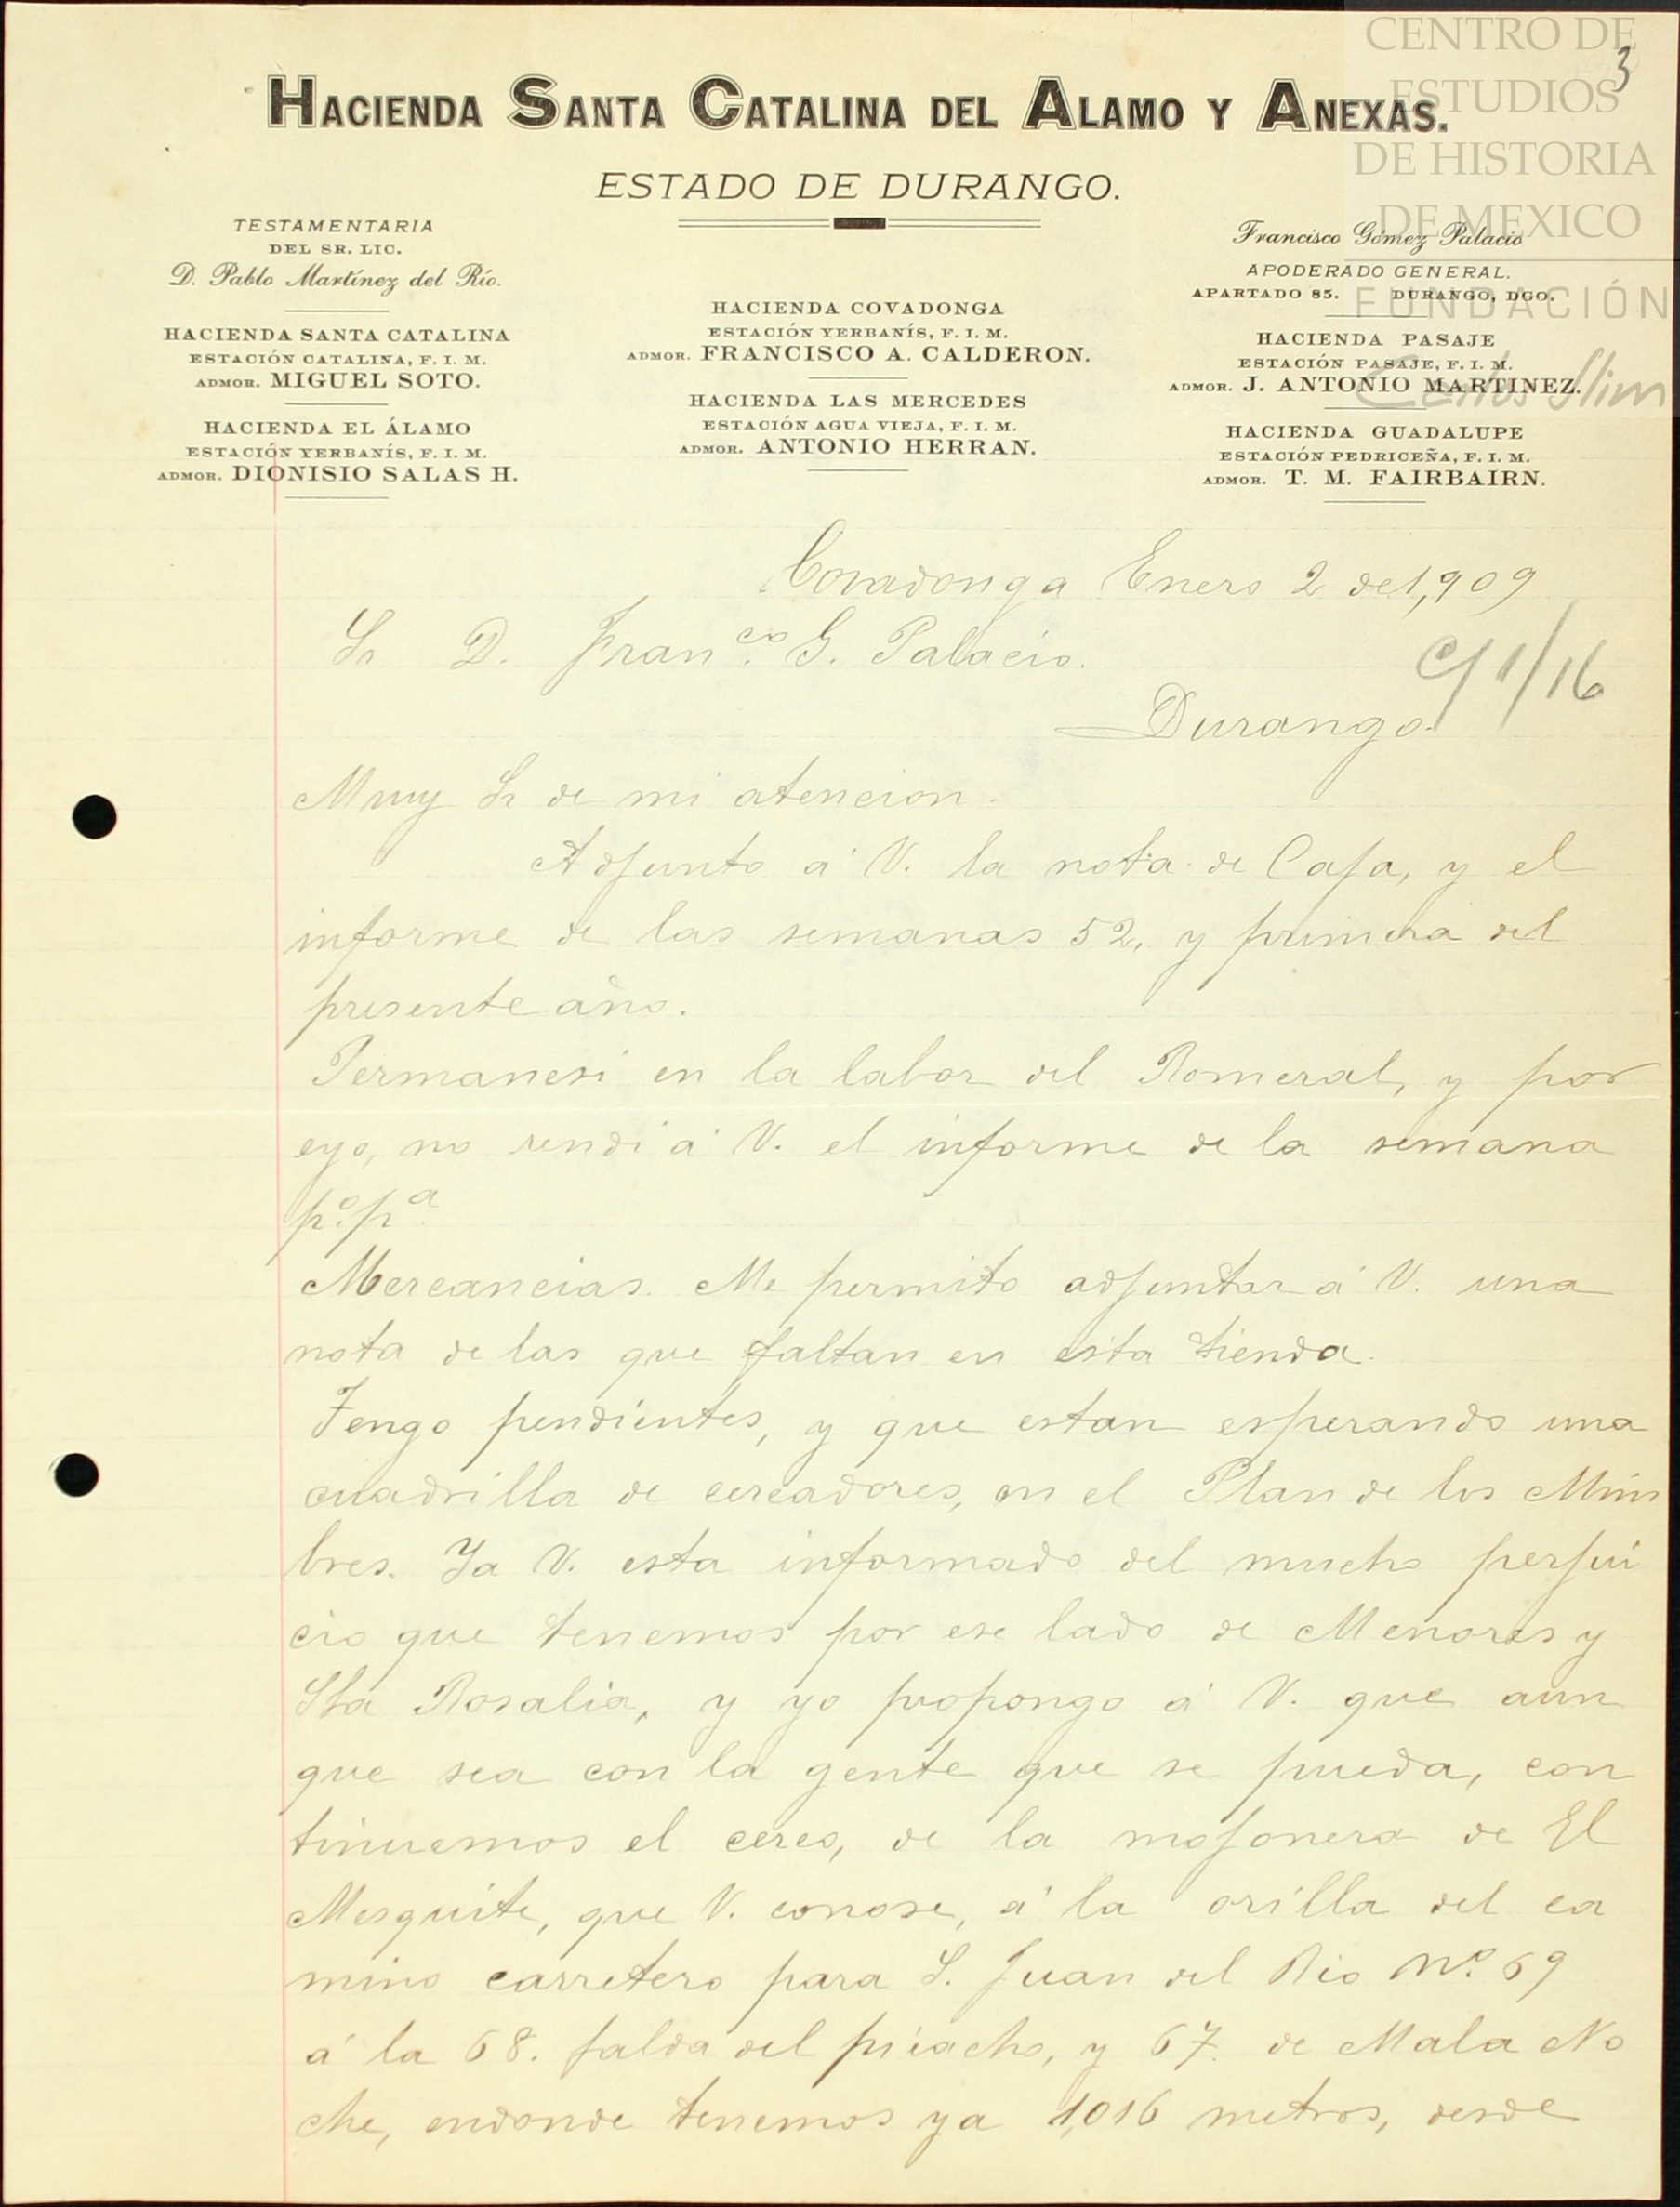 CENTRO DE
ESTUDIOS
DE HISTORIA
DE MEXICO
FUNDACIÓN
Carlos Slim
3
HACIENDA SANTA CATALINA DEL ALAMO Y ANEXAS.
ESTADO DE DURANGO.
TESTAMENTARIA
DEL SR. LIC.
D. Pablo Martínez del Río.
HACIENDA SANTA CATALINA
ESTACIÓN CATALINA, F. I. M.
ADMOR. MIGUEL SOTO.
HACIENDA EL ÁLAMO
ESTACIÓN YERBANÍS, F. I. M.
ADMOR. DIONISIO SALAS H.
HACIENDA COVADONGA
ESTACIÓN YERBANÍS, F. I. M.
ADMOR. FRANCISCO A. CALDERON.
HACIENDA LAS MERCEDES
ESTACIÓN AGUA VIEJA, F. I. M.
ADMOR. ANTONIO HERRAN.
Francisco Gómez Palacio
APODERADO GENERAL.
APARTADO 85. DURANGO, DGO.
HACIENDA PASAJE
ESTACIÓN PASAJE, F. I. M.
ADMOR. J. ANTONIO MARTINEZ.
HACIENDA GUADALUPE
ESTACIÓN PEDRICEÑA, F. I. M.
ADMOR. T. M. FAIRBAIRN.
Covadonga Enero 2 de 1,909
Sr D. Franco. G. Palacio.
C/ 1/16
Durango.
Muy Sr de mi atencion.
Adjunto á V. la nota de Caja, y el
informe de las semanas 52, y primera del
presente año.
Permanesi en la labor del Romeral, y por
eyo, no rendi á V. el informe de la semana
po. pa.
Mercancias. Me permito adjuntar á V. una
nota de las que faltan en esta tienda.
Tengo pendientes, y que estan esperando una
cuadrilla de cercadores, en el Plan de los Mim
bres. Ya V. esta informado del mucho perjui
cio que tenemos por ese lado de Menores y
Sta Rosalia, y yo propongo á V. que aun
que sea con la gente que se pueda, con
tinuemos el cerco, de la mojonera de El
Mesquite, que V. conose, á la orilla del ca
mino carretero para S. Juan del Rio No. 69
á la 68. falda del picacho, y 67. de Mala No
che, endonde tenemos ya 1,016 metros, desde